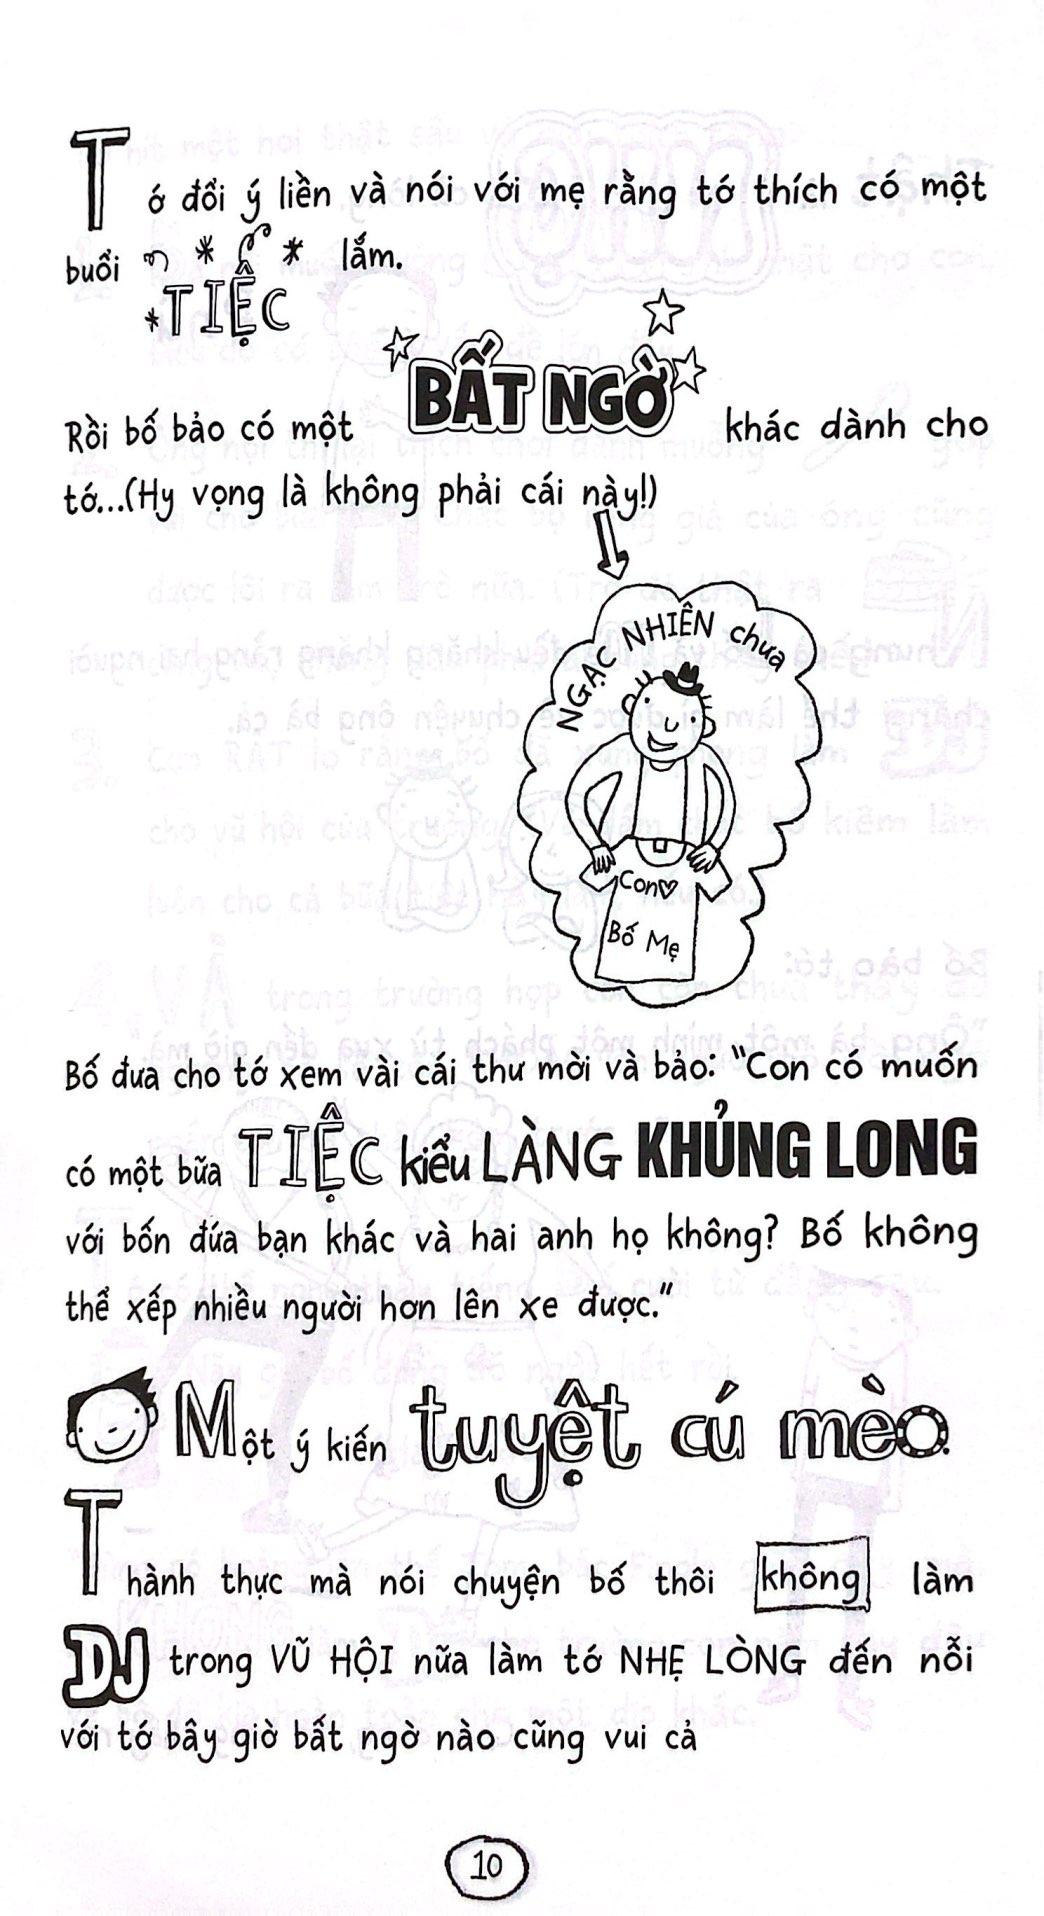 Tớ đổi ý liền và nói với mẹ rằng tớ thích có một
buổi *TIỆC lắm.
Rồi bố bảo có một BẤT NGỜ khác dành cho
tớ...(Hy vọng là không phải cái này!)
NGẠC NHIÊN chưa
Con♡
Bố Mẹ
Bố đưa cho tớ xem vài cái thư mời và bảo: "Con có muốn
có một bữa TIỆC kiểu LÀNG KHỦNG LONG
với bốn đứa bạn khác và hai anh họ không? Bố không
thể xếp nhiều người hơn lên xe được."
Một ý kiến tuyệt cú mèo.
Thành thực mà nói chuyện bố thôi không làm
DJ trong VŨ HỘI nữa làm tớ NHẸ LÒNG đến nỗi
với tớ bây giờ bất ngờ nào cũng vui cả
10